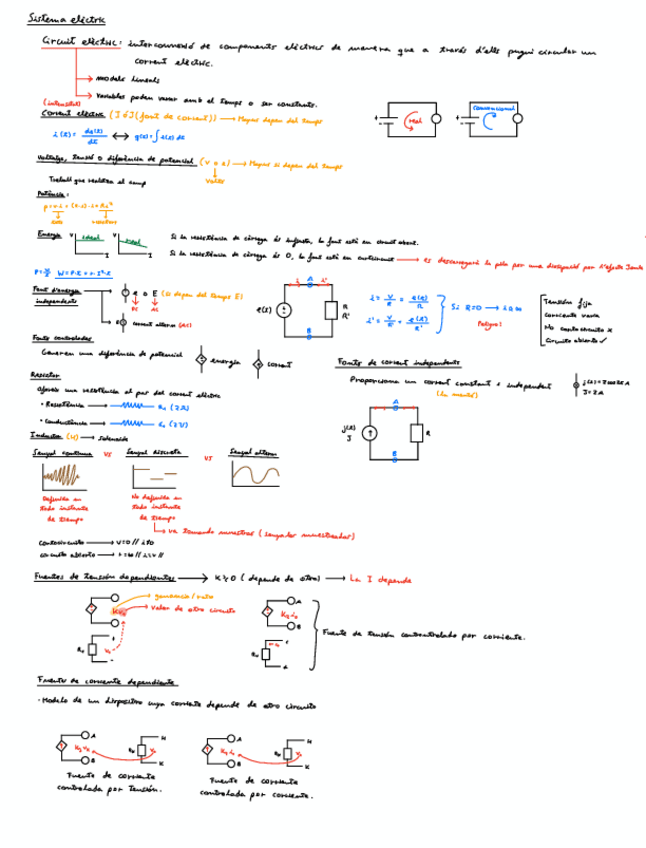 Sistema elèctric
Circuit elèctric: interconnexió de components elèctrics de manera que a través d'ells pugui circular un
corrent elèctric.
models lineals
variables poden variar amb el temps o ser constants.
(intensitat)
Corrent elèctric (I ó J (font de corrent)) → Mayus depen del temps
i(t) = dq(t)/dt ↔ q(t) = ∫ i(t) dt
real
Convencional
Voltatge, tensió o diferència de potencial (V o E) → Mayus si depen del temps
Volts
Treball que realitza el camp
Potència:
Energia
V ideal I
V real I
Si la resistència de càrrega és infinita, la font està en circuit obert.
Si la resistència de càrrega és 0, la font està en curtcircuit → es descarregarà la pila per una dissipació per l'efecte Joule
Font d'energia
independents
e o E (si depen del temps E)
DC AC
corrent altern (AC)
e(t)
A
B
R
R'
i = V/R = e(t)/R
i' = V/R' = e(t)/R'
Si R=0 → i=∞
Peligro!
Tensión fija
corriente varia
No cortocircuito x
Circuito abierto ✓
Fonts controlades
Generen una diferència de potencial
energia
corrent
Fonts de corrent independents
Proporciona un corrent constant i independent
J=2A
j(t)
J
A
B
R
Resistor
ofereix una resistència al pas del corrent elèctric
• Resistència →
• Conductància →
Inductor (H) → Solenoide
Senyal continua vs Senyal discreta vs Senyal altern
Definida en
todo instante
de tiempo
No definida en
todo instante
de tiempo
va tomando muestras (senyales muestreadas)
Cortocircuito → V=0 //
circuito abierto →
Fuentes de tensión dependientes → K≥0 (depende de otro) → La I depende
ganancia / ratio
valor de otro circuito
A
B
Fuente de tensión controlada por corriente.
Fuente de corriente dependiente
• Modelo de un dispositivo cuya corriente depende de otro circuito
A
B
K
A
B
K
Fuente de corriente
controlada por Tensión.
Fuente de corriente
controlada por corriente.